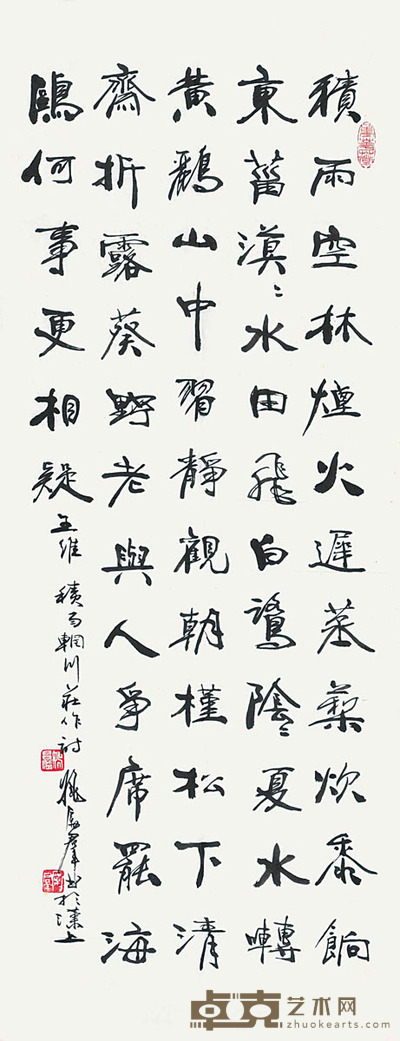 積雨空林煙火遲蒸藜炊黍餉
東菑漠〻水田飛白鷺陰〻夏水囀
黃鸝山中習靜觀朝槿松下清
齋折露葵野老與人爭席罷海
鷗何事更相疑
王維 積雨輞川莊作詩 群書於溱上
卓克艺术网
zhuokearts.com